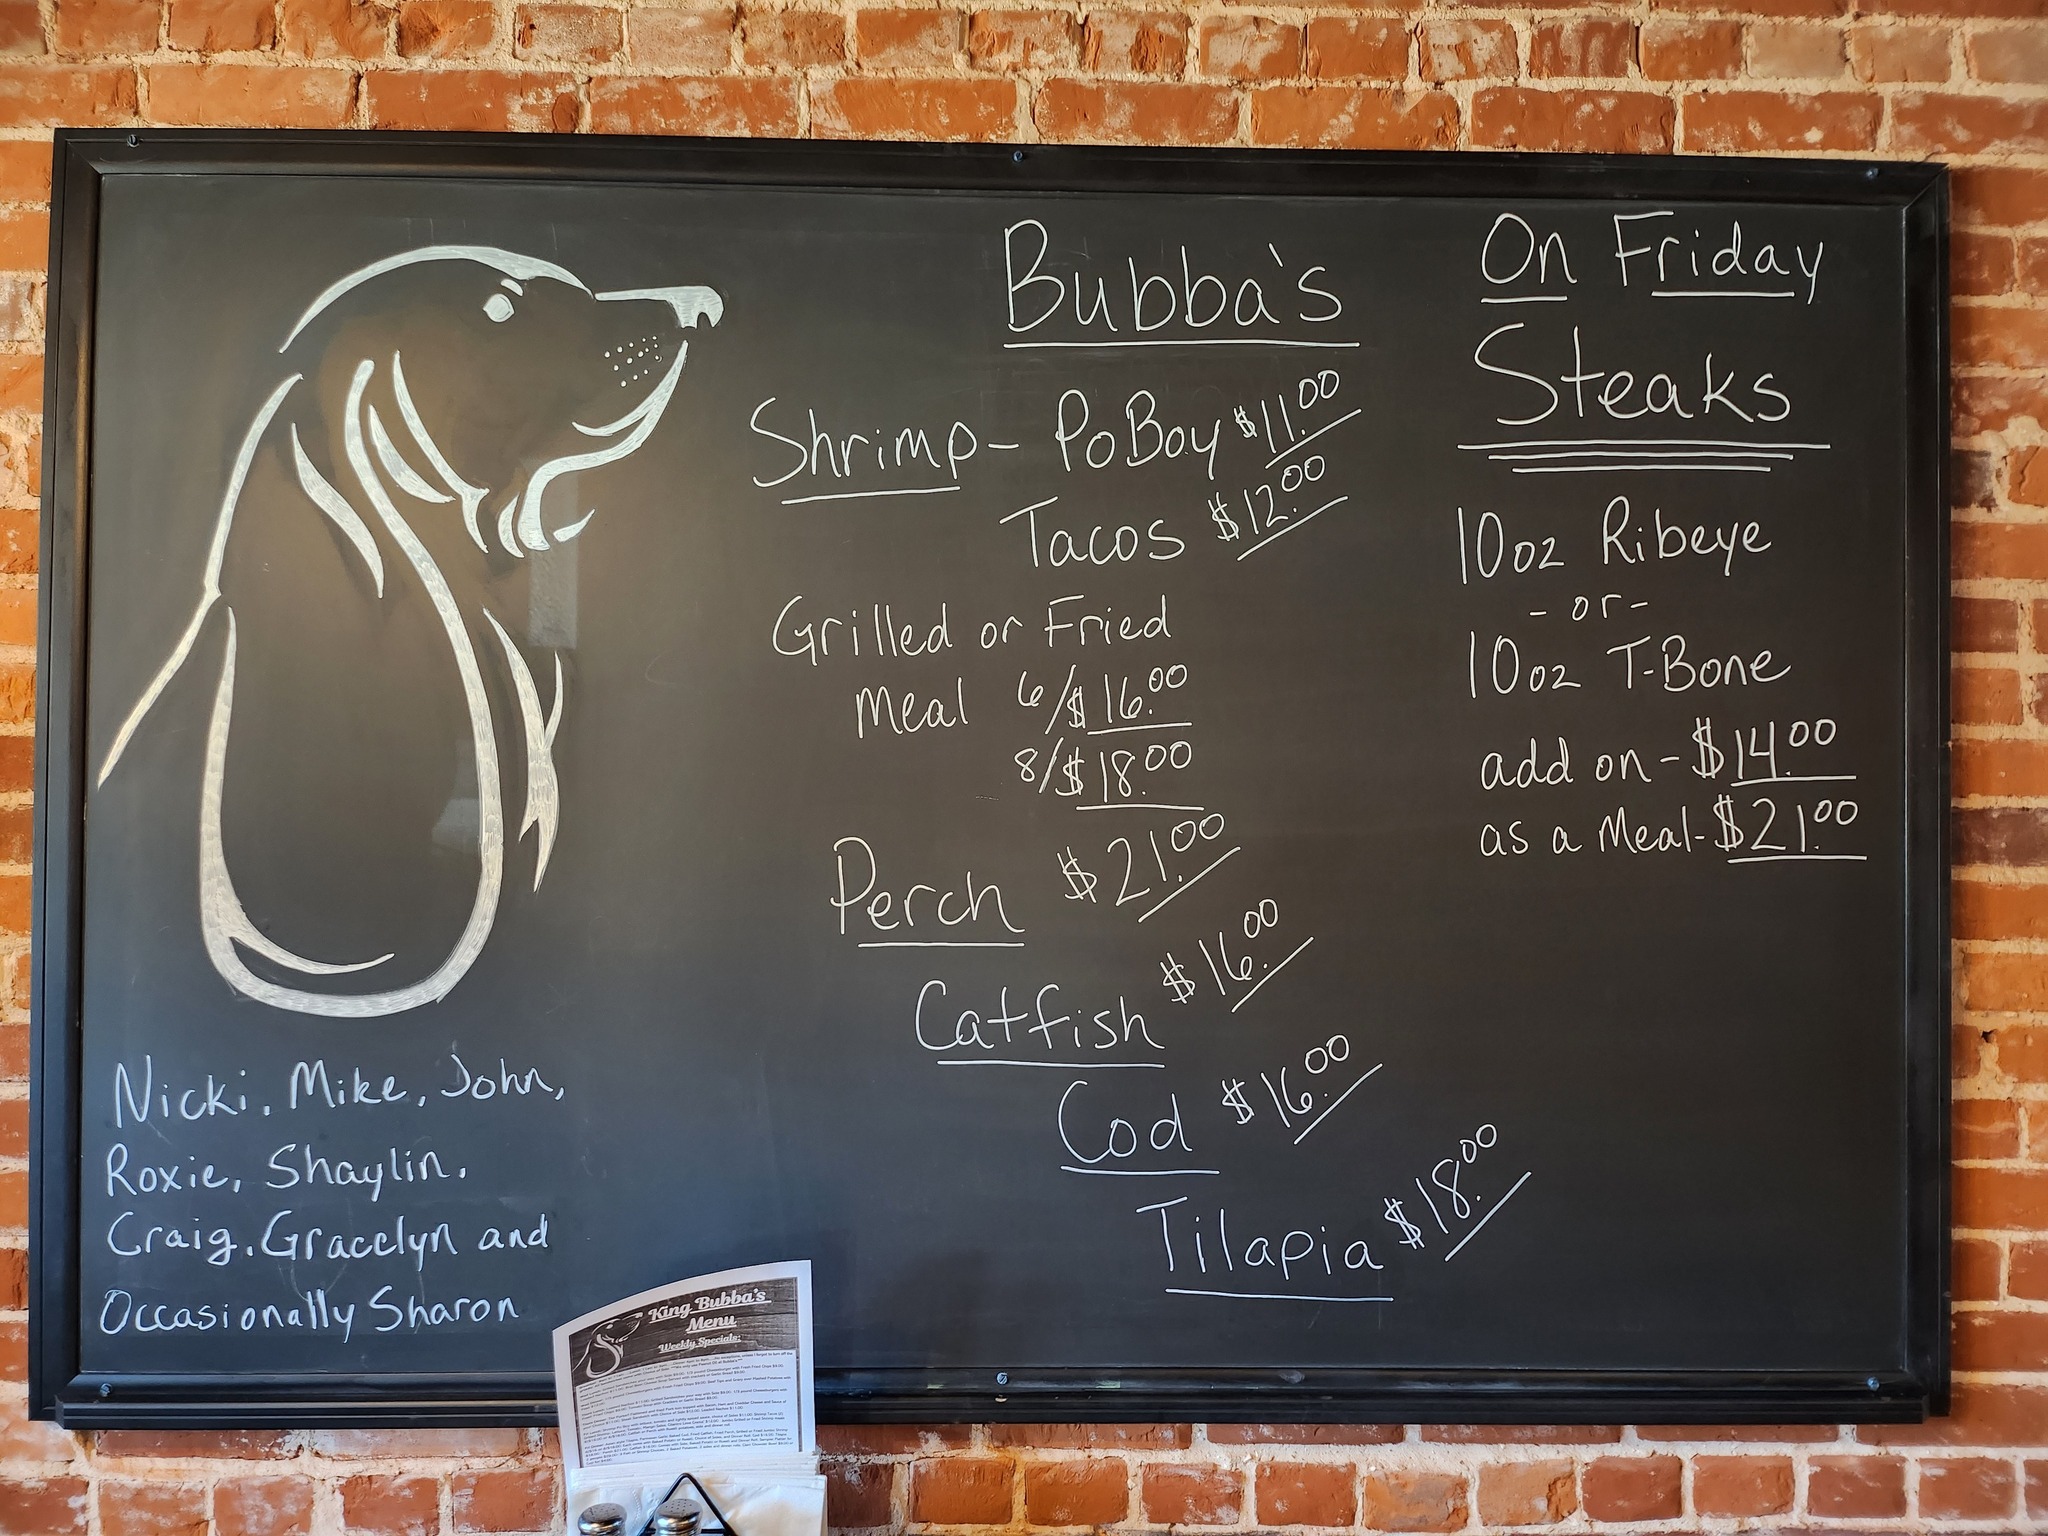 Bubba's
Shrimp - PoBoy $11.00
Tacos $12.00
Grilled or Fried
Meal 6/$16.00
8/$18.00
Perch $21.00
Catfish $16.00
Cod $16.00
Tilapia $18.00
On Friday
Steaks
10oz Ribeye
- or -
10oz T-Bone
add on - $14.00
as a Meal - $21.00
Nicki, Mike, John,
Roxie, Shaylin,
Craig, Gracelyn and
Occasionally Sharon
King Bubba's
Menu
Weekly Specials: